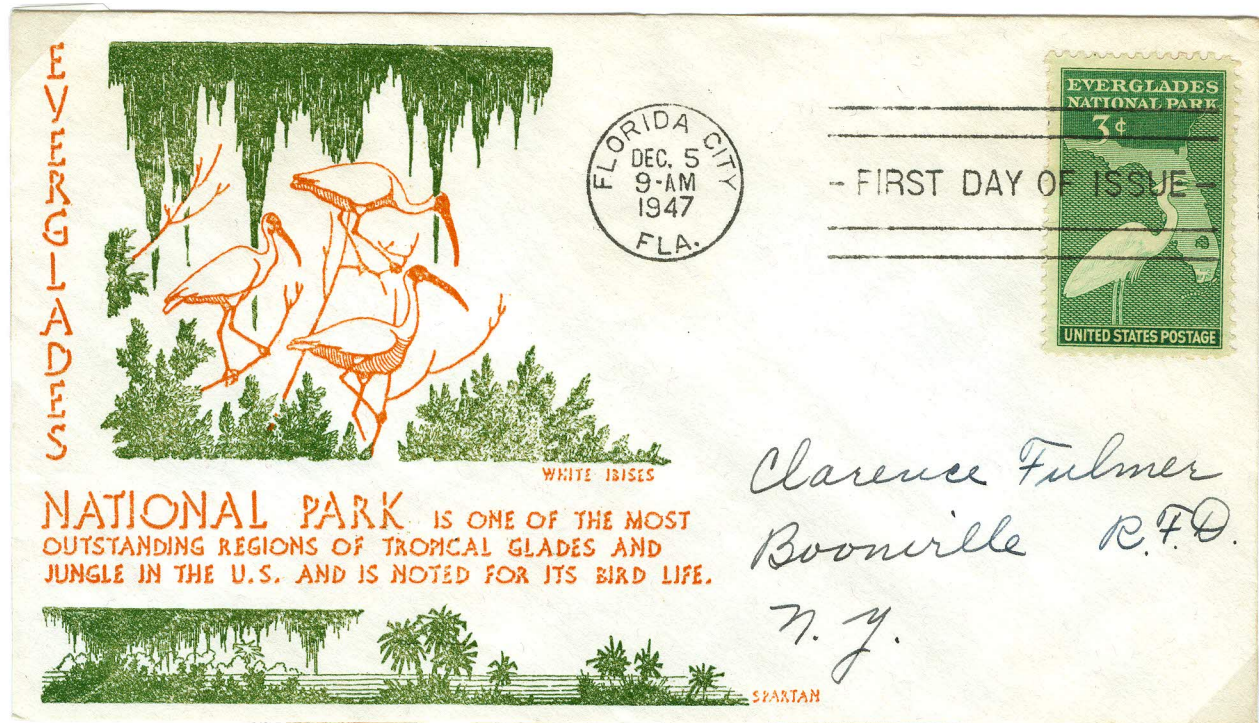 EVERGLADES
NATIONAL PARK IS ONE OF THE MOST
OUTSTANDING REGIONS OF TROPICAL GLADES AND
JUNGLE IN THE U.S. AND IS NOTED FOR ITS BIRD LIFE.
WHITE IBISES
SPARTAN
FLORIDA CITY
DEC. 5
9-AM
1947
FLA.
- FIRST DAY OF ISSUE -
EVERGLADES
NATIONAL PARK
3¢
UNITED STATES POSTAGE
Clarence Fulmer
Boonville R.F.D.
N.Y.